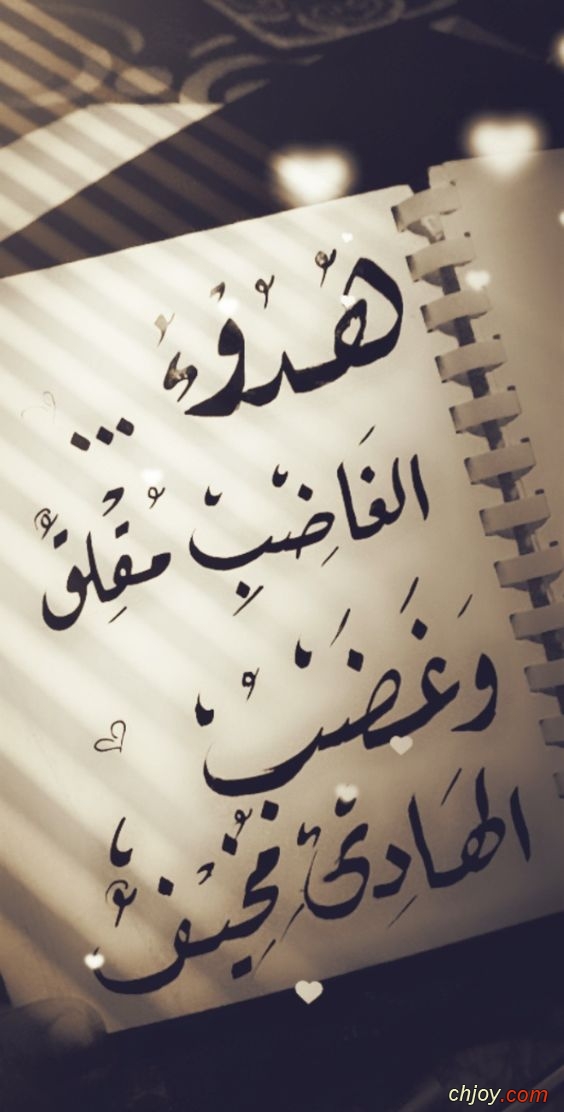 هُدُوْءُ
...
الغَاضِبْ مُقْلِقٌ
وَغَضَبُ
الهَادِئْ مُخِيْفٌ
chjoy.com